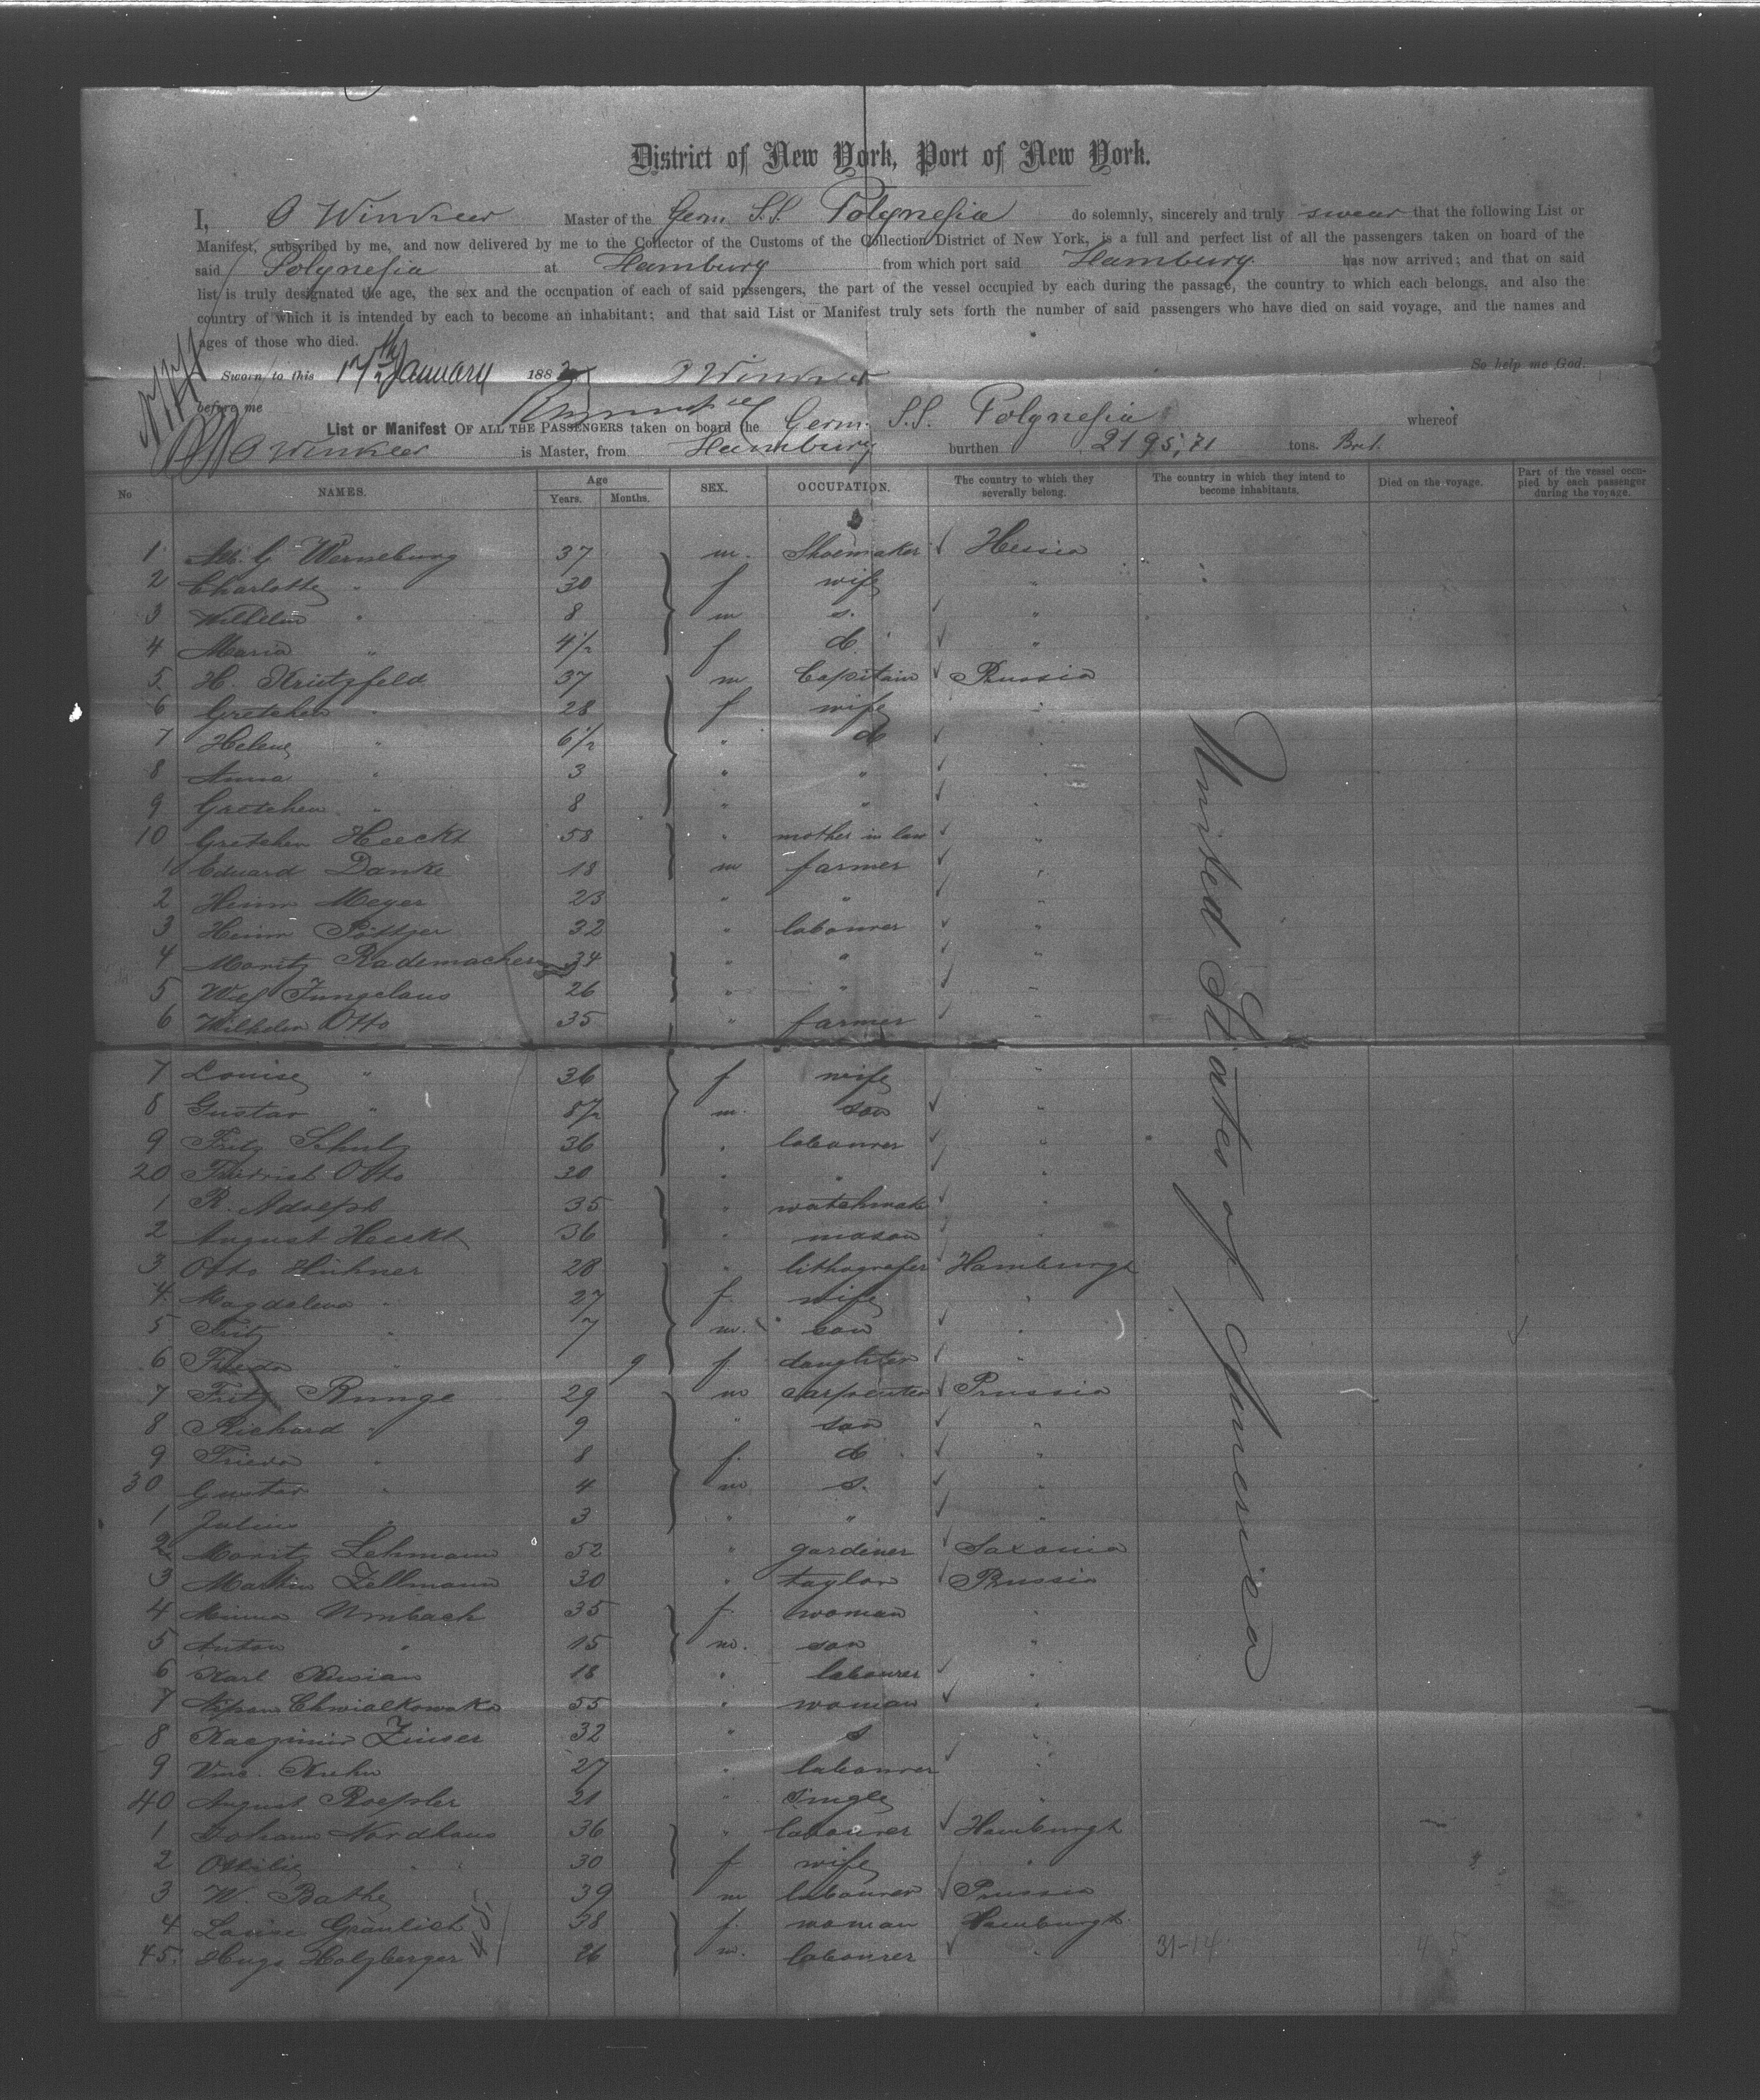 District of New York, Port of New York.
I, O Winkler Master of the Germ. S.S. Polynesia do solemnly, sincerely and truly swear that the following List or
Manifest, subscribed by me, and now delivered by me to the Collector of the Customs of the Collection District of New York, is a full and perfect list of all the passengers taken on board of the
said Polynesia at Hamburg from which port said Hamburg has now arrived; and that on said
list is truly designated the age, the sex and the occupation of each of said passengers, the part of the vessel occupied by each during the passage, the country to which each belongs, and also the
country of which it is intended by each to become an inhabitant; and that said List or Manifest truly sets forth the number of said passengers who have died on said voyage, and the names and
ages of those who died.
So help me God.
Sworn to this 17th January 188 O Winkler
before me
List or Manifest OF ALL THE PASSENGERS taken on board the Germ. S.S. Polynesia whereof
O Winkler is Master, from Hamburg burthen 2195,71 tons. Brt.
No NAMES. Age Years. Months. SEX. OCCUPATION. The country to which they severally belong. The country in which they intend to become inhabitants. Died on the voyage. Part of the vessel occupied by each passenger during the voyage.
1 G Werneburg 37 m. Shoemaker Hessia
2 Charlotte " 30 f wife "
3 Wilhelm " 8 m s. "
4 Maria " 4 1/2 f d. "
5 H. Krützfeld 37 m Capitain Prussia
6 Gretchen " 28 f wife "
7 Helene " 6 1/2 " d "
8 Anna " 3 " " "
9 Gretchen " 8 " " "
10 Gretchen Heeckt 58 " mother in law "
1 Eduard Danke 18 m farmer "
2 Heinr Meyer 23 " " "
3 Heinr Pöttger 32 " labourer "
4 Moritz Rademacher 34 " " "
5 Wil Jungclaus 26 " " "
6 Wilhelm Otto 35 " farmer "
7 Louise " 36 f wife "
8 Gustav " 8 1/2 m. son "
9 Fritz Schultz 36 " labourer "
20 Friedrich Otto 30 " " "
1 R. Adolph 35 " watchmake "
2 August Heeckt 36 " mason "
3 Otto Hühner 28 " lithografer Hamburgh
4 Magdalena " 27 f. wife "
5 Fritz " 7 m. son "
6 Frieda " 9 f. daughter "
7 Fritz Runge 29 m carpenter Prussia
8 Richard " 9 " son "
9 Frieda " 8 f. d "
30 Gustav " 4 m s. "
1 Julius " 3 " " "
2 Moritz Lehmann 52 " gardener Saxonia
3 Martin Zellmann 30 " taylor Prussia
4 Minna Umbach 35 f. woman "
5 Anton " 15 m. son "
6 Karl 18 " labourer "
7 Chwialkowska 55 " woman "
8 Kazimir Zinser 32 " s "
9 Vinc. Kuhn 27 " labourer "
40 August Roessler 21 " single "
1 Johann Nordhaus 36 " labourer Hamburgh
2 Ottilie " 30 f wife "
3 W. Bathe 39 m labourer Prussia
4 Louise Gräulich 38 f. woman Hamburgh
45. Hugo Holzberger 26 m. labourer "
United States of America
45
31-14
4 5